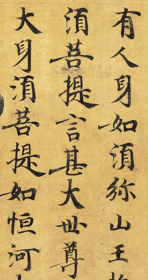 有人身如須弥山王
須菩提言甚大世尊
大身須菩提如恒河